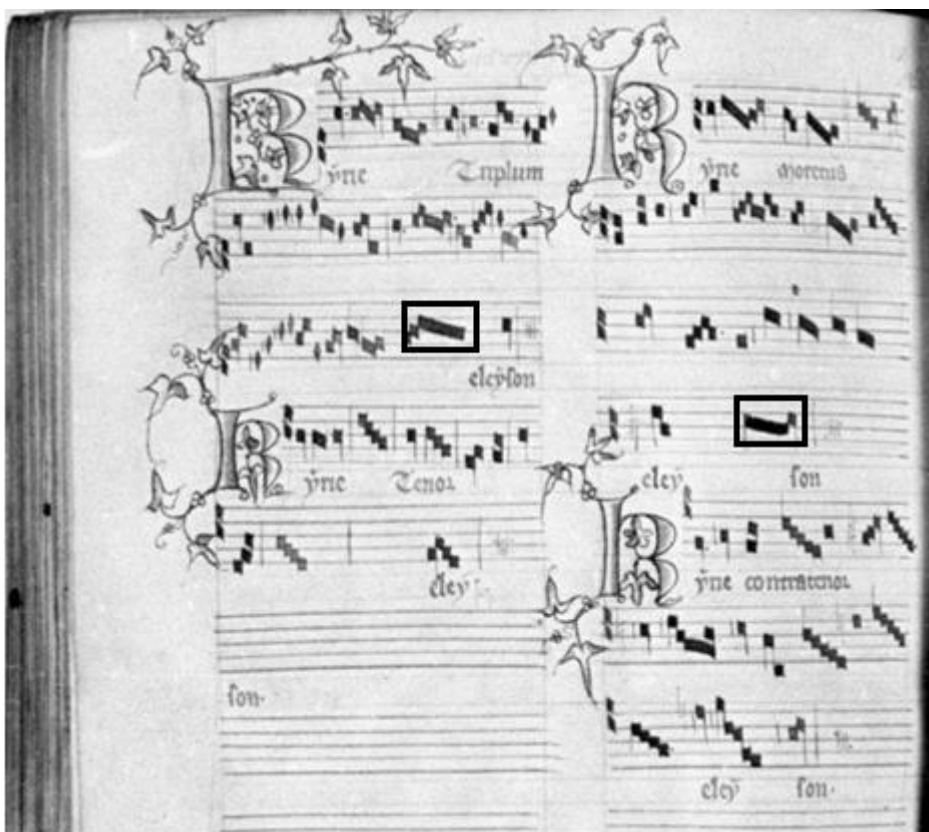 Kyrie Triplum
eleyson
Kyrie Tenor
eley
son.
Kyrie motetus
eley son
Kyrie contratenor
eley son.